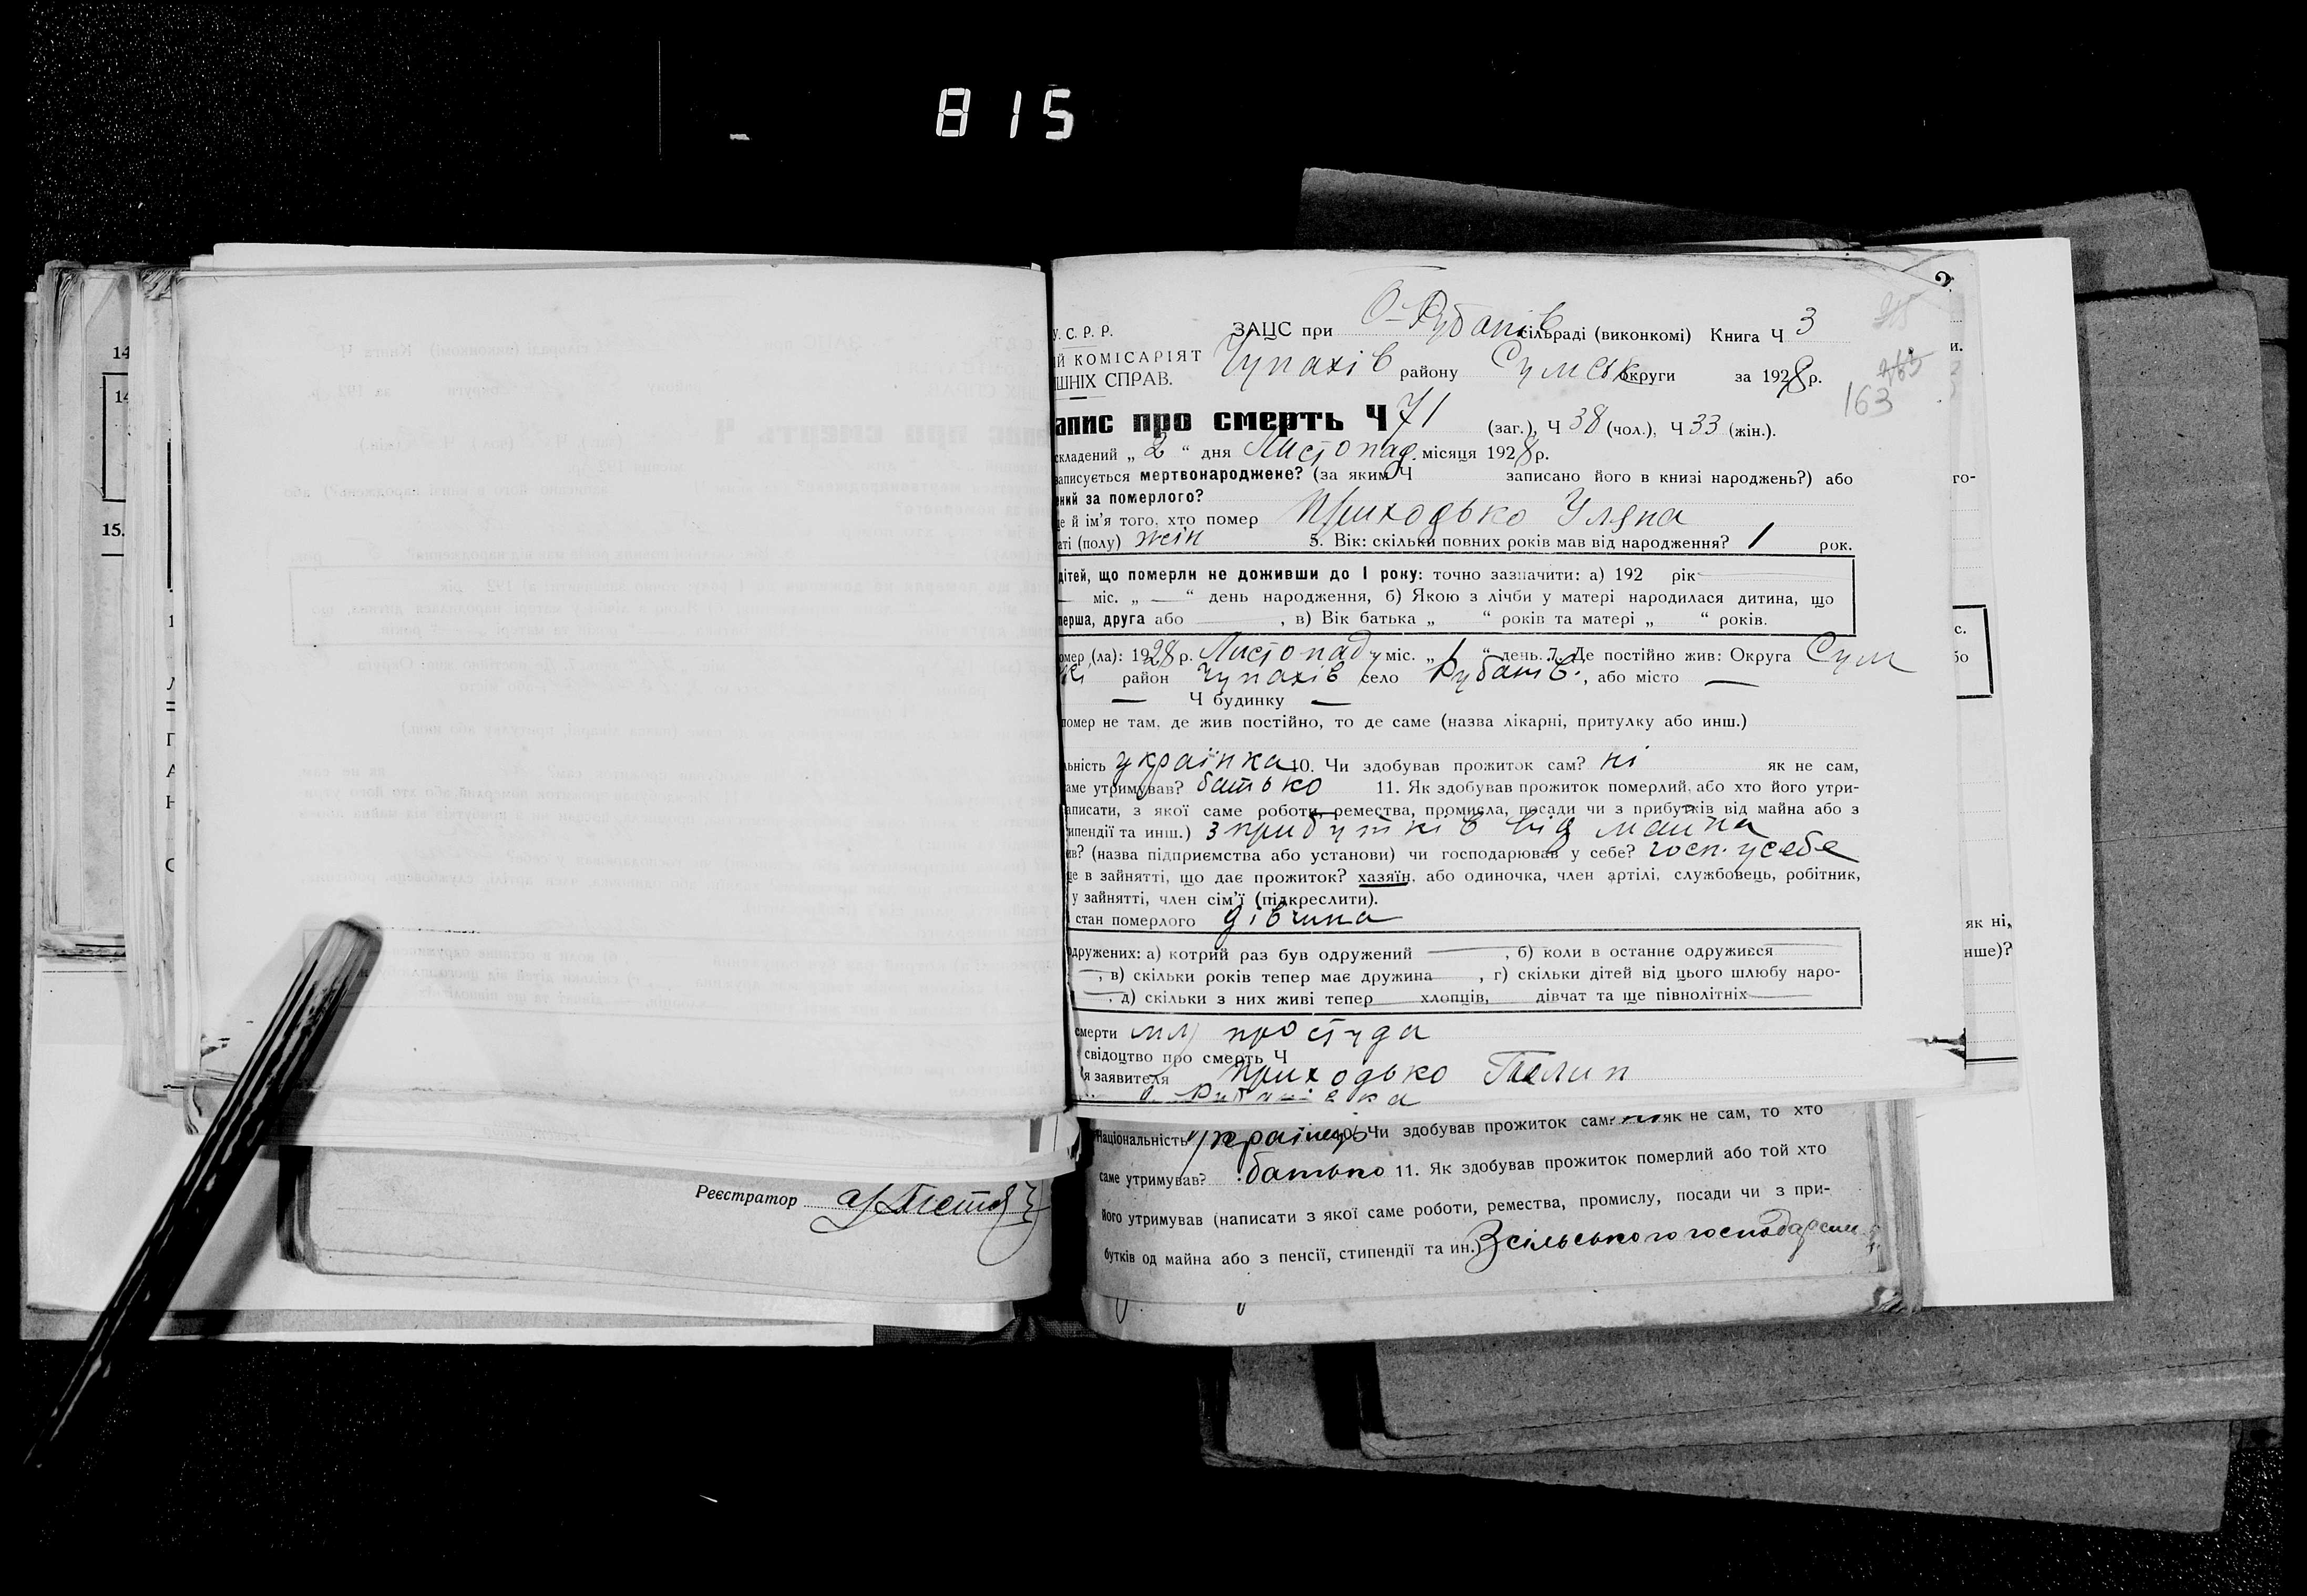 815
У. С. Р. Р. ЗАЦС при О-Рубанів сільраді (виконкомі) Книга Ч 3
ИЙ КОМІСАРІЯТ Чупахів району Сумськ округи за 1928 р.
ШНІХ СПРАВ.
163
апис про смерть Ч 71 (заг.), Ч 38 (чол.), Ч 33 (жін.).
складений „ 2 “ дня Листопад місяця 1928 р.
записується мертвонароджене? (за яким Ч записано його в книзі народжень?) або
ений за померлого?
ще й ім’я того, хто помер Приходько Уляна
аті (полу) жін 5. Вік: скільки повних років мав від народження? 1 рок.
дітей, що померли не доживши до 1 року: точно зазначити: а) 192 рік
міс. „ — “ день народження, б) Якою з лічби у матері народилася дитина, що
перша, друга або , в) Вік батька „ “ років та матері „ “ років.
омер (ла): 1928 р. Листопад міс. „ 1 “ день. 7. Де постійно жив: Округа Сум
район Чупахів село Рубанів., або місто —
— Ч будинку —
помер не там, де жив постійно, то де саме (назва лікарні, притулку або инш.)
льність українка 10. Чи здобував прожиток сам? ні як не сам,
аме утримував? батько 11. Як здобував прожиток померлий, або хто його утри-
аписати, з якої саме роботи, ремества, промисла, посади чи з прибутків від майна або з
ипендії та инш.) з прибутків від майна
ив? (назва підприємства або установи) чи господарював у себе? госп. у себе
ще в зайнятті, що дає прожиток? хазяїн, або одиночка, член артілі, службовець, робітник,
у зайнятті, член сім’ї (підкреслити).
стан померлого дівчина
одружених: а) котрий раз був одружений , б) коли в останнє одружився
, в) скільки років тепер має дружина , г) скільки дітей від цього шлюбу наро-
, д) скільки з них живі тепер хлопців, дівчат та ще півнолітніх
смерти простуда
свідоцтво про смерть Ч
я заявителя Приходько
Національність українець 10. Чи здобував прожиток сам? ні як не сам, то хто
саме утримував? батько 11. Як здобував прожиток померлий або той хто
його утримував (написати з якої саме роботи, ремества, промислу, посади чи з при-
бутків од майна або з пенсії, стипендії та ин.) З сільського господарсти
Реєстратор
14
14
15.
го-
с.
бо
як ні,
нше)?